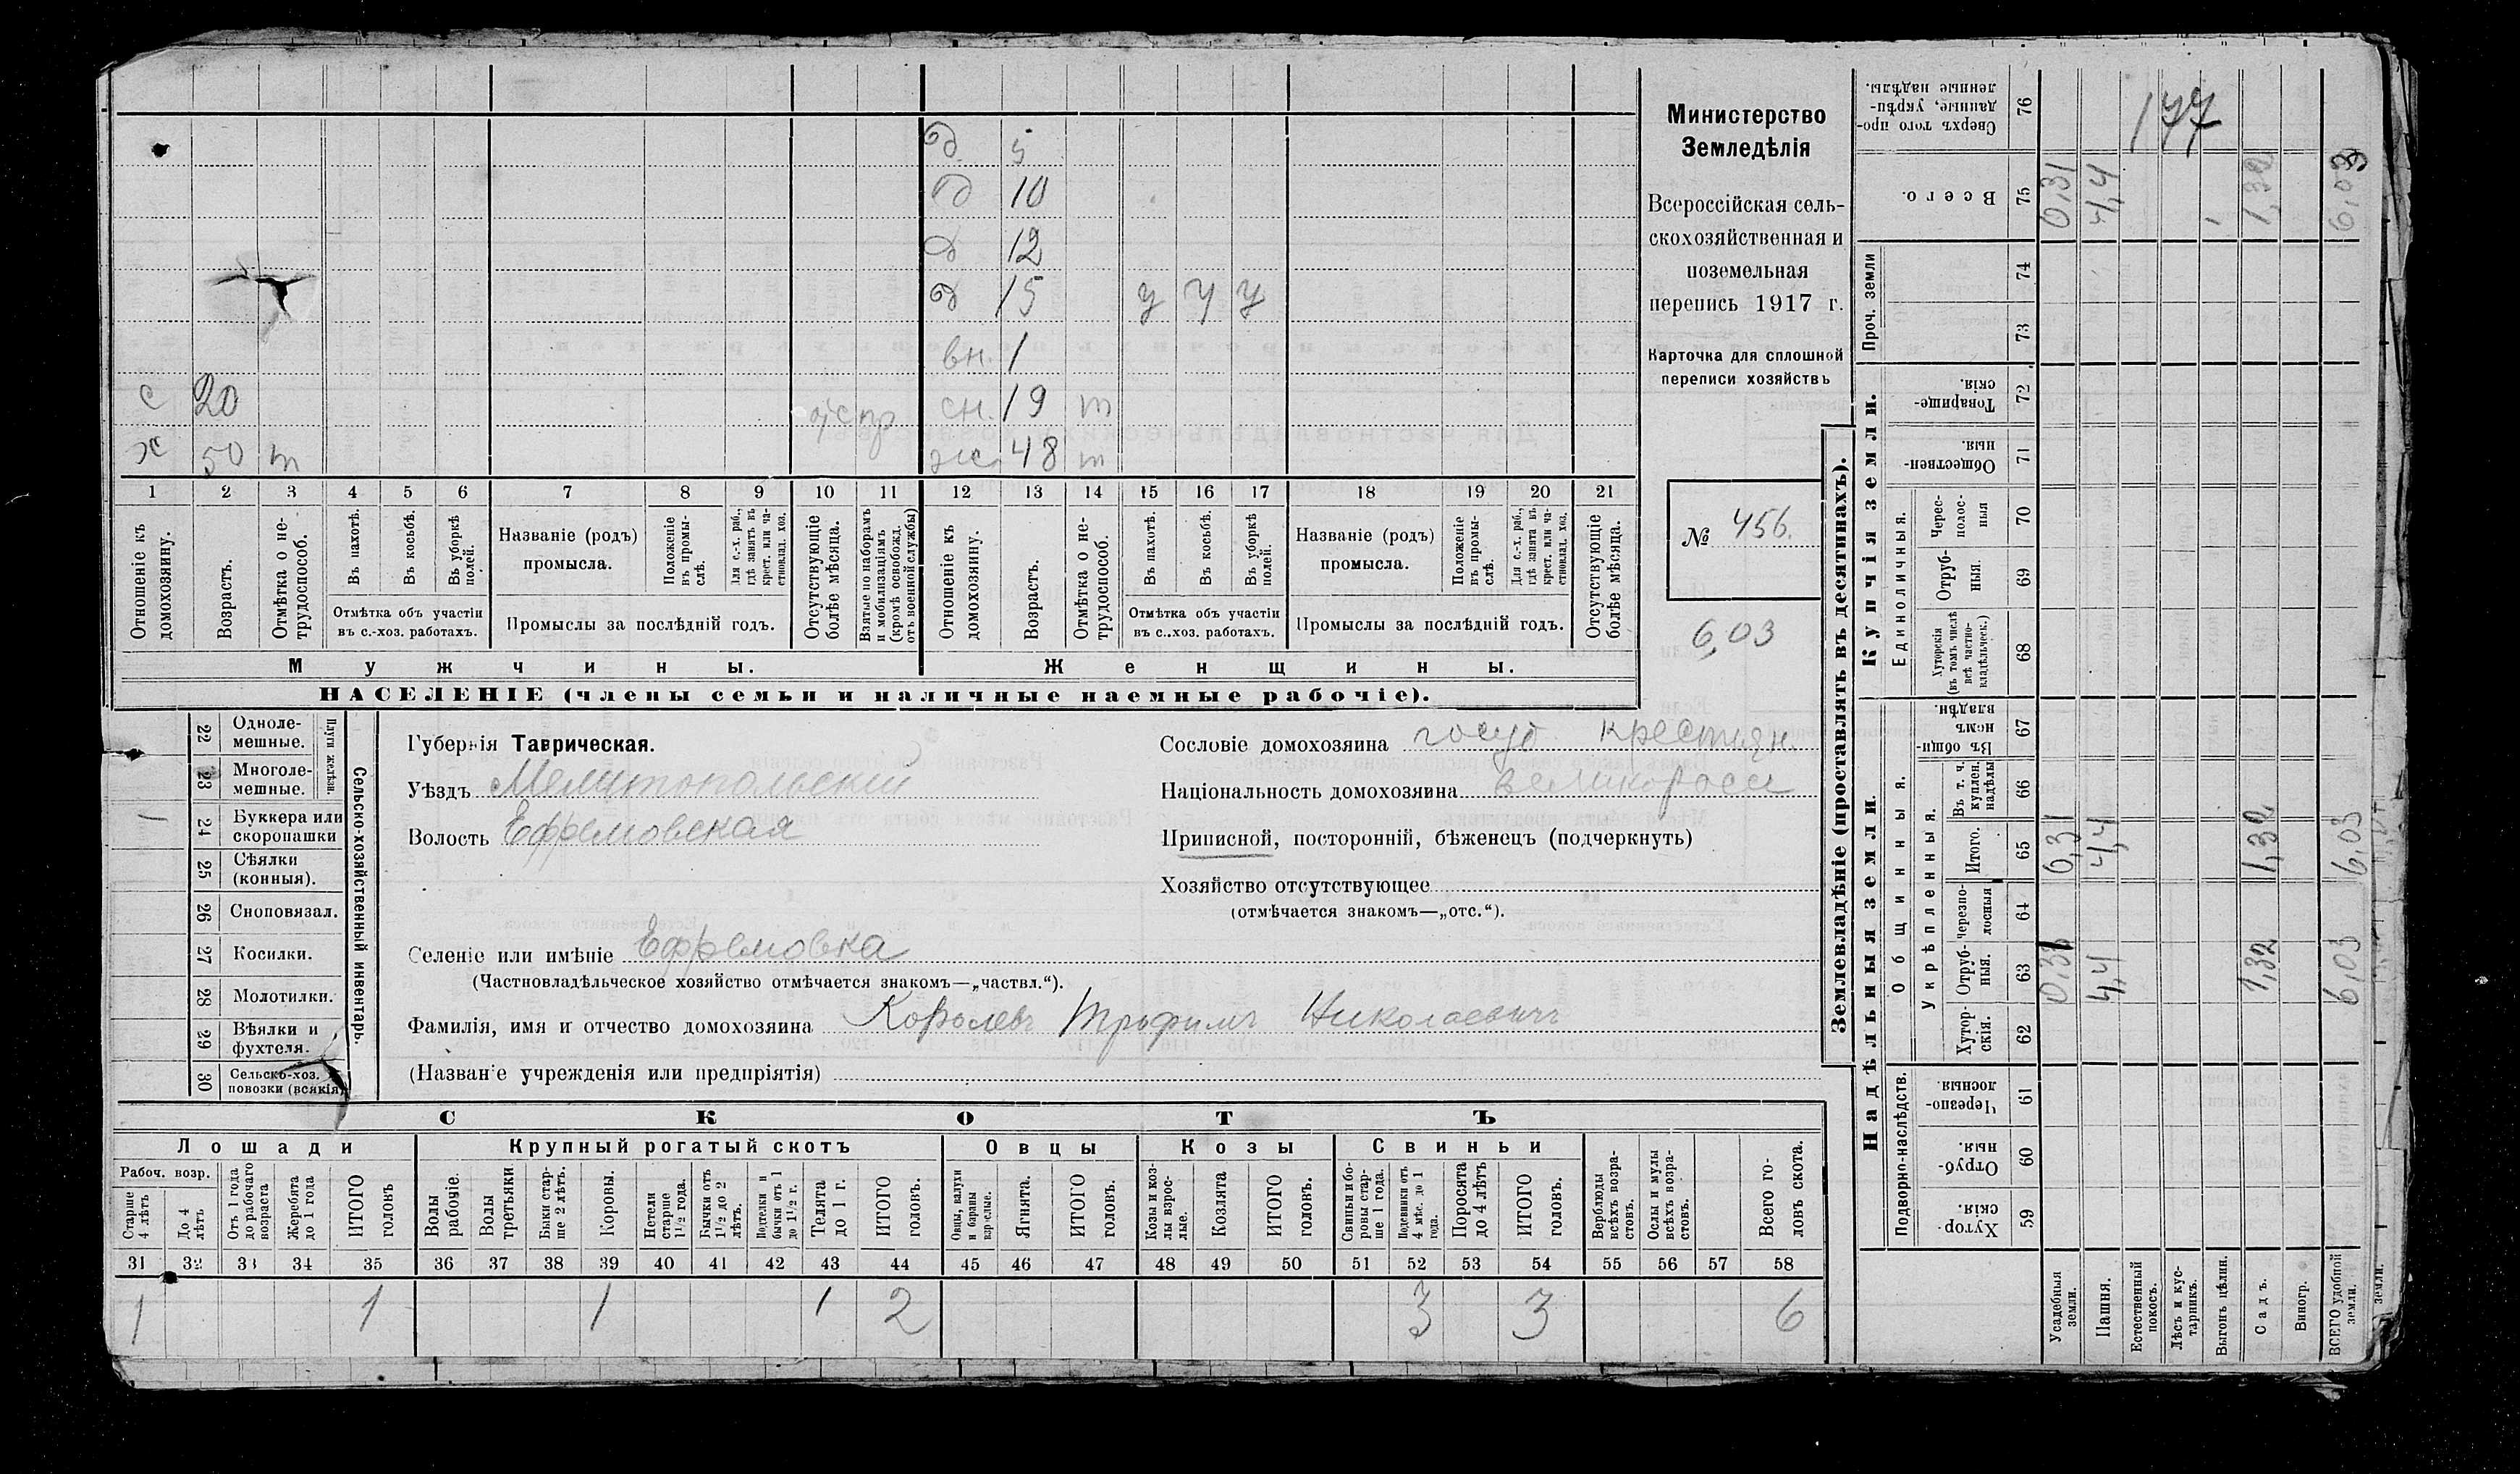 д 5
д 10
д 12
д 15 у у у
вн. 1
с 20 сн. 19 т
х 50 т ж. 48 т
1 2 3 4 5 6 7 8 9 10 11 12 13 14 15 16 17 18 19 20 21
Отношеніе къ домохозяину.
Возрастъ.
Отмѣтка о нетрудоспособ.
Въ пахотѣ.
Въ косьбѣ.
Въ уборкѣ полей.
Отмѣтка объ участіи
въ с.-хоз. работахъ.
Названіе (родъ)
промысла.
Положеніе въ промыслѣ.
Для с.-х. раб., гдѣ занятъ въ крест. или частновлад. хоз.
Промыслы за послѣдній годъ.
Отсутствующіе болѣе мѣсяца.
Взятые по наборамъ и мобилизаціямъ (кромѣ освобожд. отъ военной службы)
Отношеніе къ домохозяину.
Возрастъ.
Отмѣтка о нетрудоспособ.
Въ пахотѣ.
Въ косьбѣ.
Въ уборкѣ полей.
Отмѣтка объ участіи
въ с..хоз. работахъ.
Названіе (родъ)
промысла.
Положеніе въ промыслѣ.
Для с.-х. раб., гдѣ занята въ крест. или частновлад. хоз.
Промыслы за послѣдній годъ.
Отсутствующіе болѣе мѣсяца.
Мужчины. Женщины.
НАСЕЛЕНІЕ (члены семьи и наличные наемные рабочіе).
Министерство
Земледѣлія
Всероссійская сель-
скохозяйственная и
поземельная
перепись 1917 г.
Карточка для сплошной
переписи хозяйствъ
№ 456.
6,03
22 Одноле-
мешные.
23 Многоле-
мешные.
Плуги желѣзн.
24 Буккера или
скоропашки
1
25 Сѣялки
(конныя).
26 Сноповязал.
27 Косилки.
28 Молотилки.
29 Вѣялки и
фухтеля.
30 Сельско-хоз.
повозки (всякія)
Сельско-хозяйственный инвентарь.
Губернія Таврическая.
Уѣздъ Мелитопольскій
Волость Ефремовская
Селеніе или имѣніе Ефремовка
(Частновладѣльческое хозяйство отмѣчается знакомъ—„частвл.“).
Фамилія, имя и отчество домохозяина Королевъ Трофимъ Николаевичъ
(Названіе учрежденія или предпріятія)
Сословіе домохозяина госуд крестьян.
Національность домохозяина великоросс
Приписной, посторонній, бѣженецъ (подчеркнуть)
Хозяйство отсутствующее
(отмѣчается знакомъ—„отс.“).
СКОТЪ
Лошади Крупный рогатый скотъ Овцы Козы Свиньи
Рабоч. возр.
Старше 4 лѣтъ
До 4 лѣтъ
Отъ 1 года до рабочаго возраста
Жеребята до 1 года
ИТОГО головъ
Волы рабочіе.
Волы третьяки
Быки старше 2 лѣтъ.
Коровы.
Нетели старше 1½ года.
Бычки отъ 1½ до 2 лѣтъ.
Подтелки и бычки отъ 1 до 1½ г.
Телята до 1 г.
ИТОГО головъ.
Овцы, валухи и бараны взрослые.
Ягнята.
ИТОГО головъ.
Козы и козлы взрослые.
Козлята
ИТОГО головъ.
Свиньи и боровы старше 1 года.
Подсвинки отъ 4 мѣс. до 1 года.
Поросята до 4 лѣтъ
ИТОГО головъ.
Верблюды всѣхъ возрастовъ.
Ослы и мулы всѣхъ возрастовъ.
Всего головъ скота.
31 32 33 34 35 36 37 38 39 40 41 42 43 44 45 46 47 48 49 50 51 52 53 54 55 56 57 58
1 1 1 1 2 3 3 6
Землевладѣніе (проставлять въ десятинахъ).
Надѣльныя земли. Купчія земли. Проч. земли
Подворно-наслѣдств. Общинныя. Укрѣпленныя. Единоличныя.
Хуторскія. 59
Отрубныя. 60
Черезполосныя 61
Хуторскія. 62
Отрубныя. 63
Черезполосныя 64
Итого. 65
Въ т. ч. куплен. надѣлы 66
Въ общинномъ владѣн. 67
Хуторскія (въ томъ числѣ всѣ частновладѣльческ.) 68
Отрубныя. 69
Черезполосныя 70
Общественныя. 71
Товарищескія. 72
73
74
Всего. 75
Сверхъ того проданные, укрѣпленные надѣлы. 76
Усадебныя земли. 0,31 0,31 0,31
Пашня. 4,4 4,4 4,4
Естественный покосъ.
Лѣсъ и кустарникъ.
Выгонъ цѣлин.
Садъ. 1,32 1,32 1,32
Виногр.
ВСЕГО удобной земли. 6,03 6,03 6,03
земли.
177